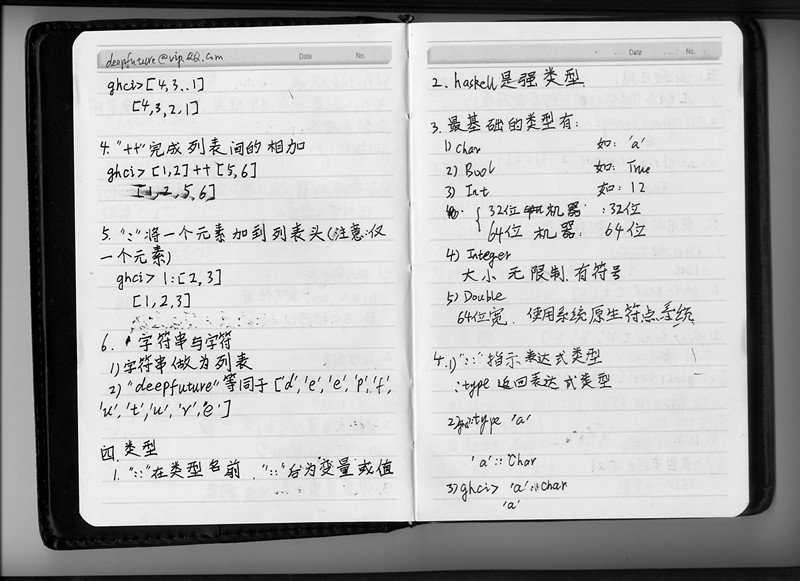 deepfuture@vip.QQ.com
Date
No.
ghci>[4,3..1]
[4,3,2,1]
4."++"完成列表间的相加
ghci>[1,2]++[5,6]
[1,2,5,6]
5.":"将一个元素加到列表头(注意:仅
一个元素)
ghci>1:[2,3]
[1,2,3]
6.字符串与字符
1)字符串做为列表
2)"deepfuture"等同于['d','e','e','p','f',
'u','t','u','r','e']
四.类型
1."::"在类型名前."::"后为变量或值
Date
No.
2.haskell是强类型
3.最基础的类型有:
1)Char 如:'a'
2)Bool 如:True
3)Int 如:12
{32位机器:32位
64位机器:64位
4)Integer
大小无限制.有符号
5)Double
64位宽.使用系统原生符点系统
4.1)"::"指示表达式类型
:type返回表达式类型
2):type 'a'
'a'::Char
3)ghci>'a'::Char
'a'